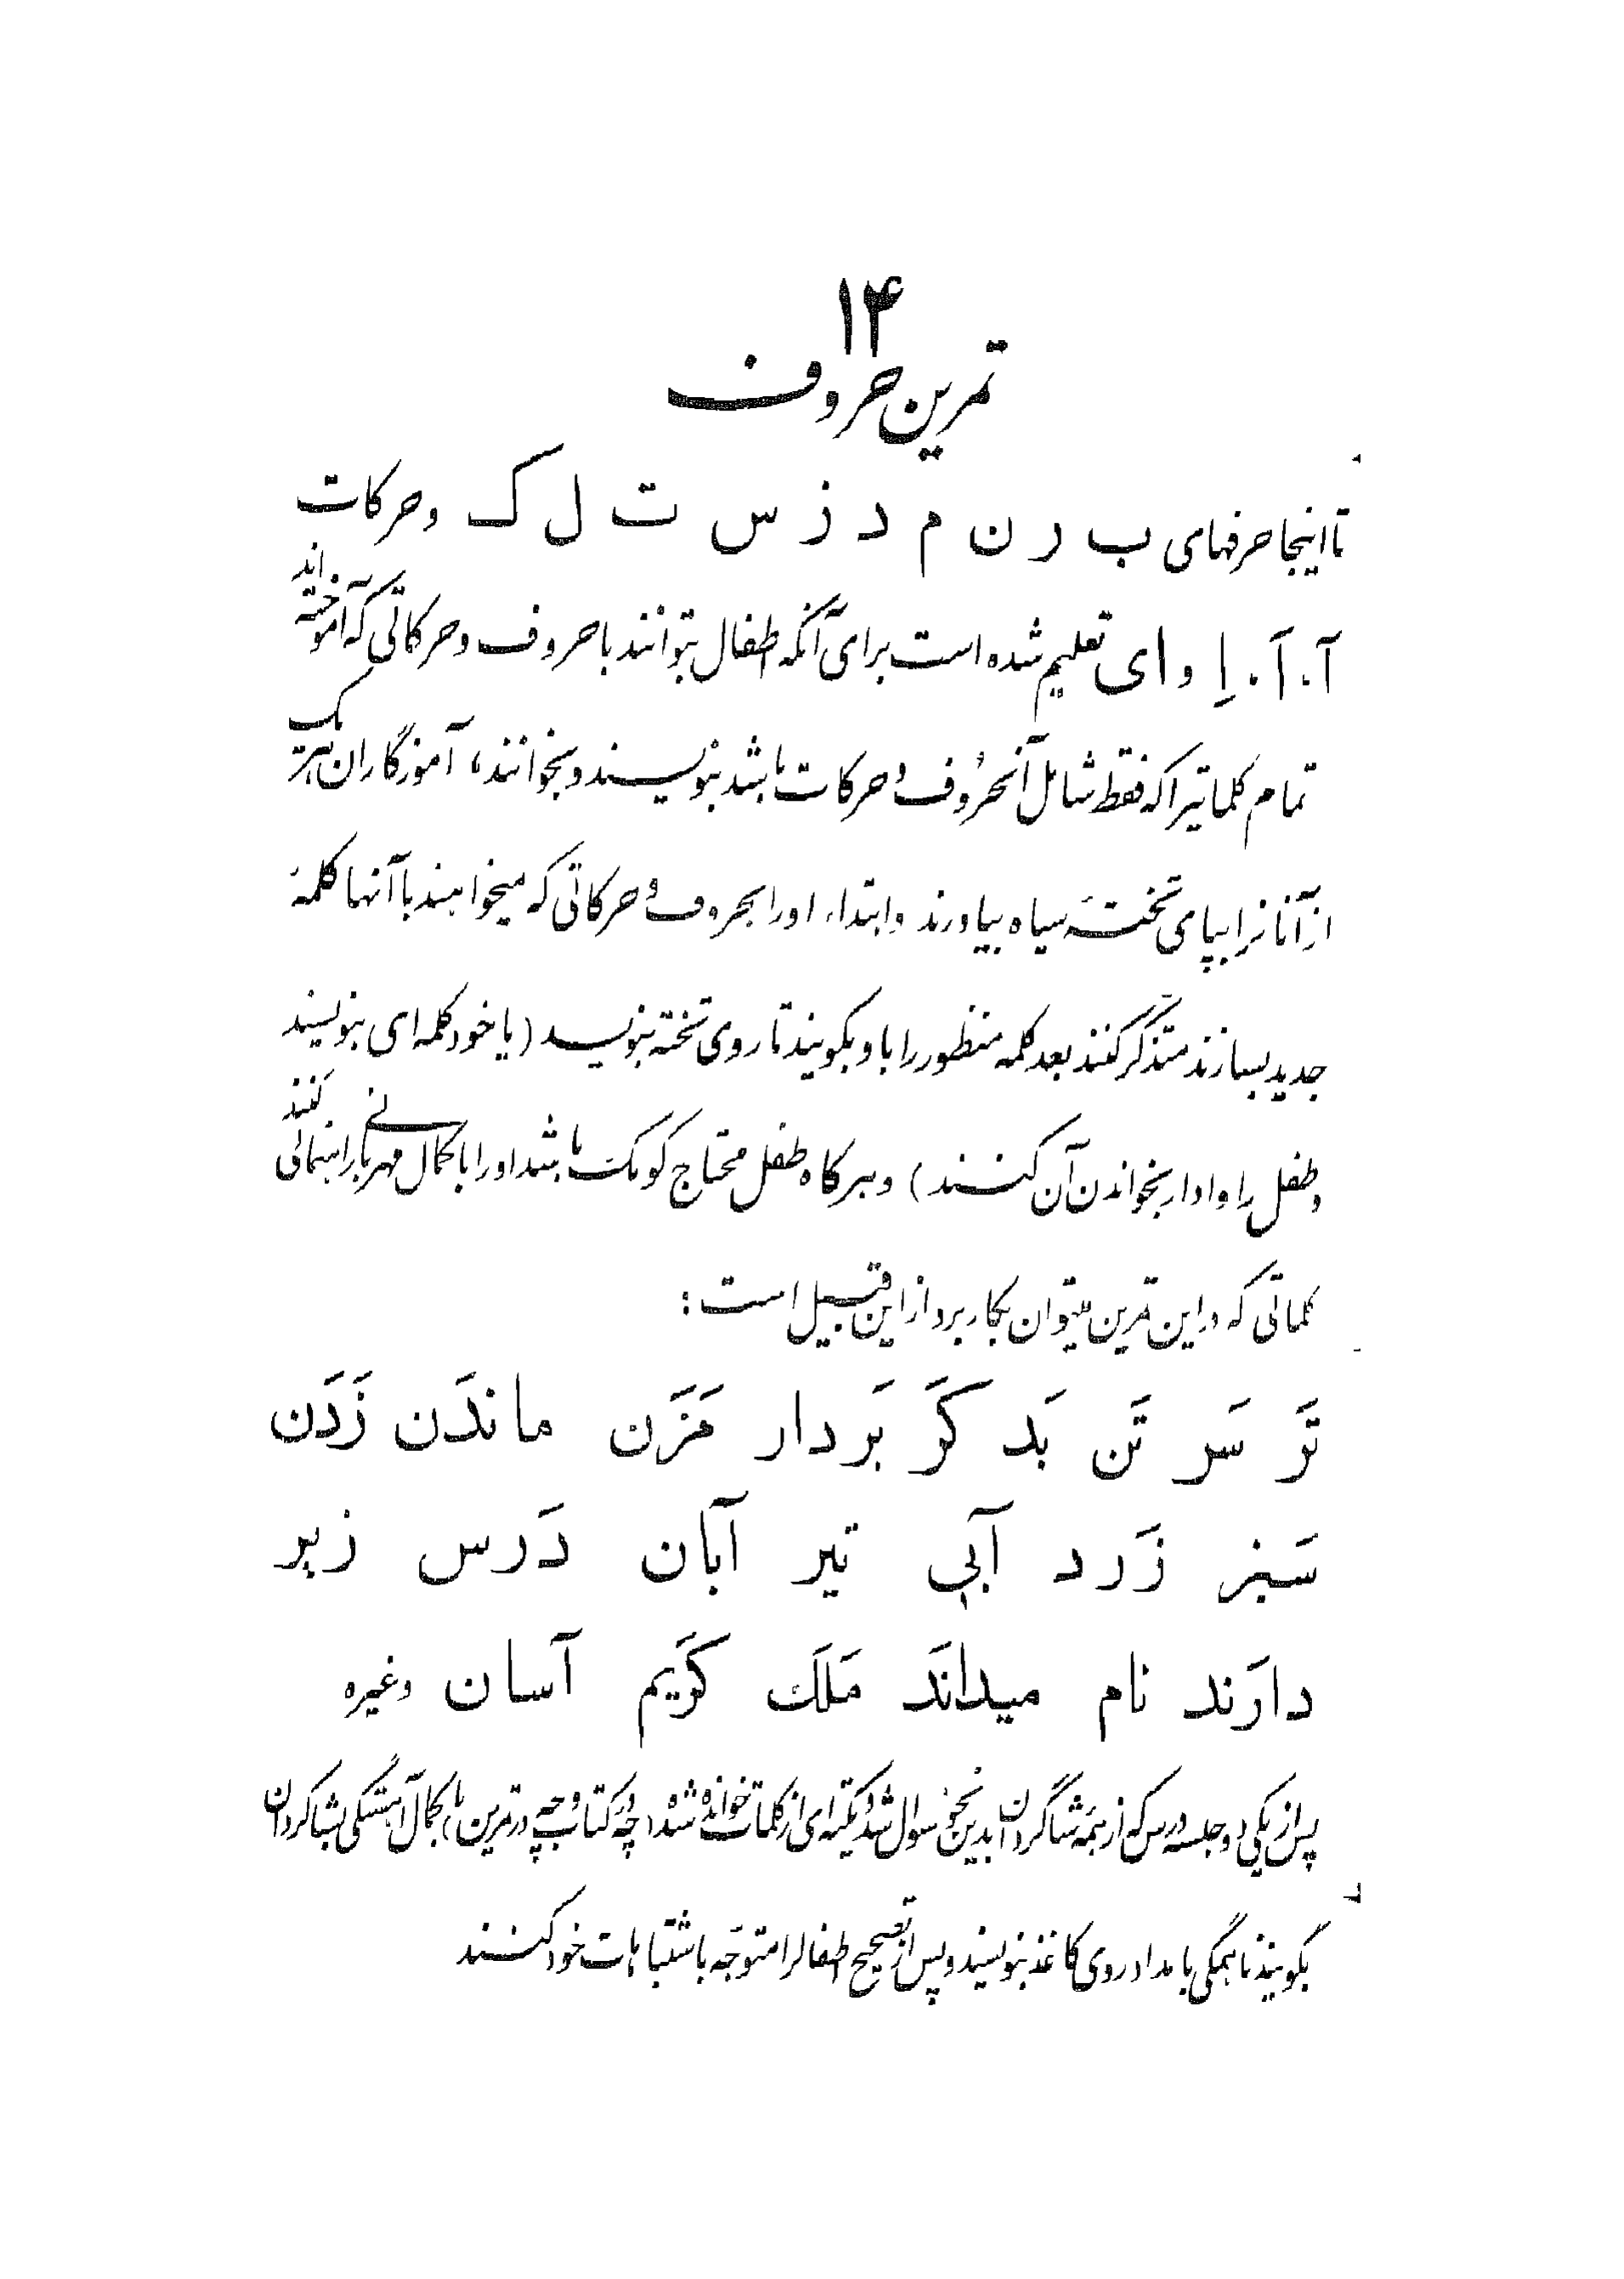 ۱۴
تمرین حروف
تا اینجا حرفهای ب ر ن م د ز س ت ل ک و حرکات
آ . اَ . اِ و ای تعلیم شده است برای آنکه اطفال بتوانند با حروف و حرکاتی که آموخته اند
تمام کلماتیرا که فقط شامل آنحروف و حرکات باشد بنویسند و بخوانند، آموزگاران هر یک
از آنانرا بپای تختهٔ سیاه بیاورند و ابتداء اورا بحروف و حرکاتی که میخواهند با آنها کلمهٔ
جدید بسازند متذکر کنند بعد کلمه منظور را باو بگویند تا روی تخته بنویسد (یا خود کلمه ای بنویسند
و طفل را وادار بخواندن آن کنند) و هر گاه طفل محتاج کومک باشد اورا با کمال مهربانی راهنمائی کنند
کلماتی که در این تمرین میتوان بکار برد از این قبیل است :
تَر سَر تَن بَد کَر بَر دار مَزَن ماندَن زَدَن
سَبز زَرد آبی تیر آبان دَرس زیر
دارَند نام میدانَد مَلَک کَریم آسان وغیره
پس از یکی دو جلسه درس که از همه شاگردان بدین نحو سوال شد و یکته ای از کلمات خوانده شده (چه در کتاب و چه در تمرین ها) بکمال آهستگی بشاگردان
بگویند تا همگی با مداد روی کاغذ بنویسند و پس از تصحیح اطفالرا متوجّه باشتباهات خود کنند